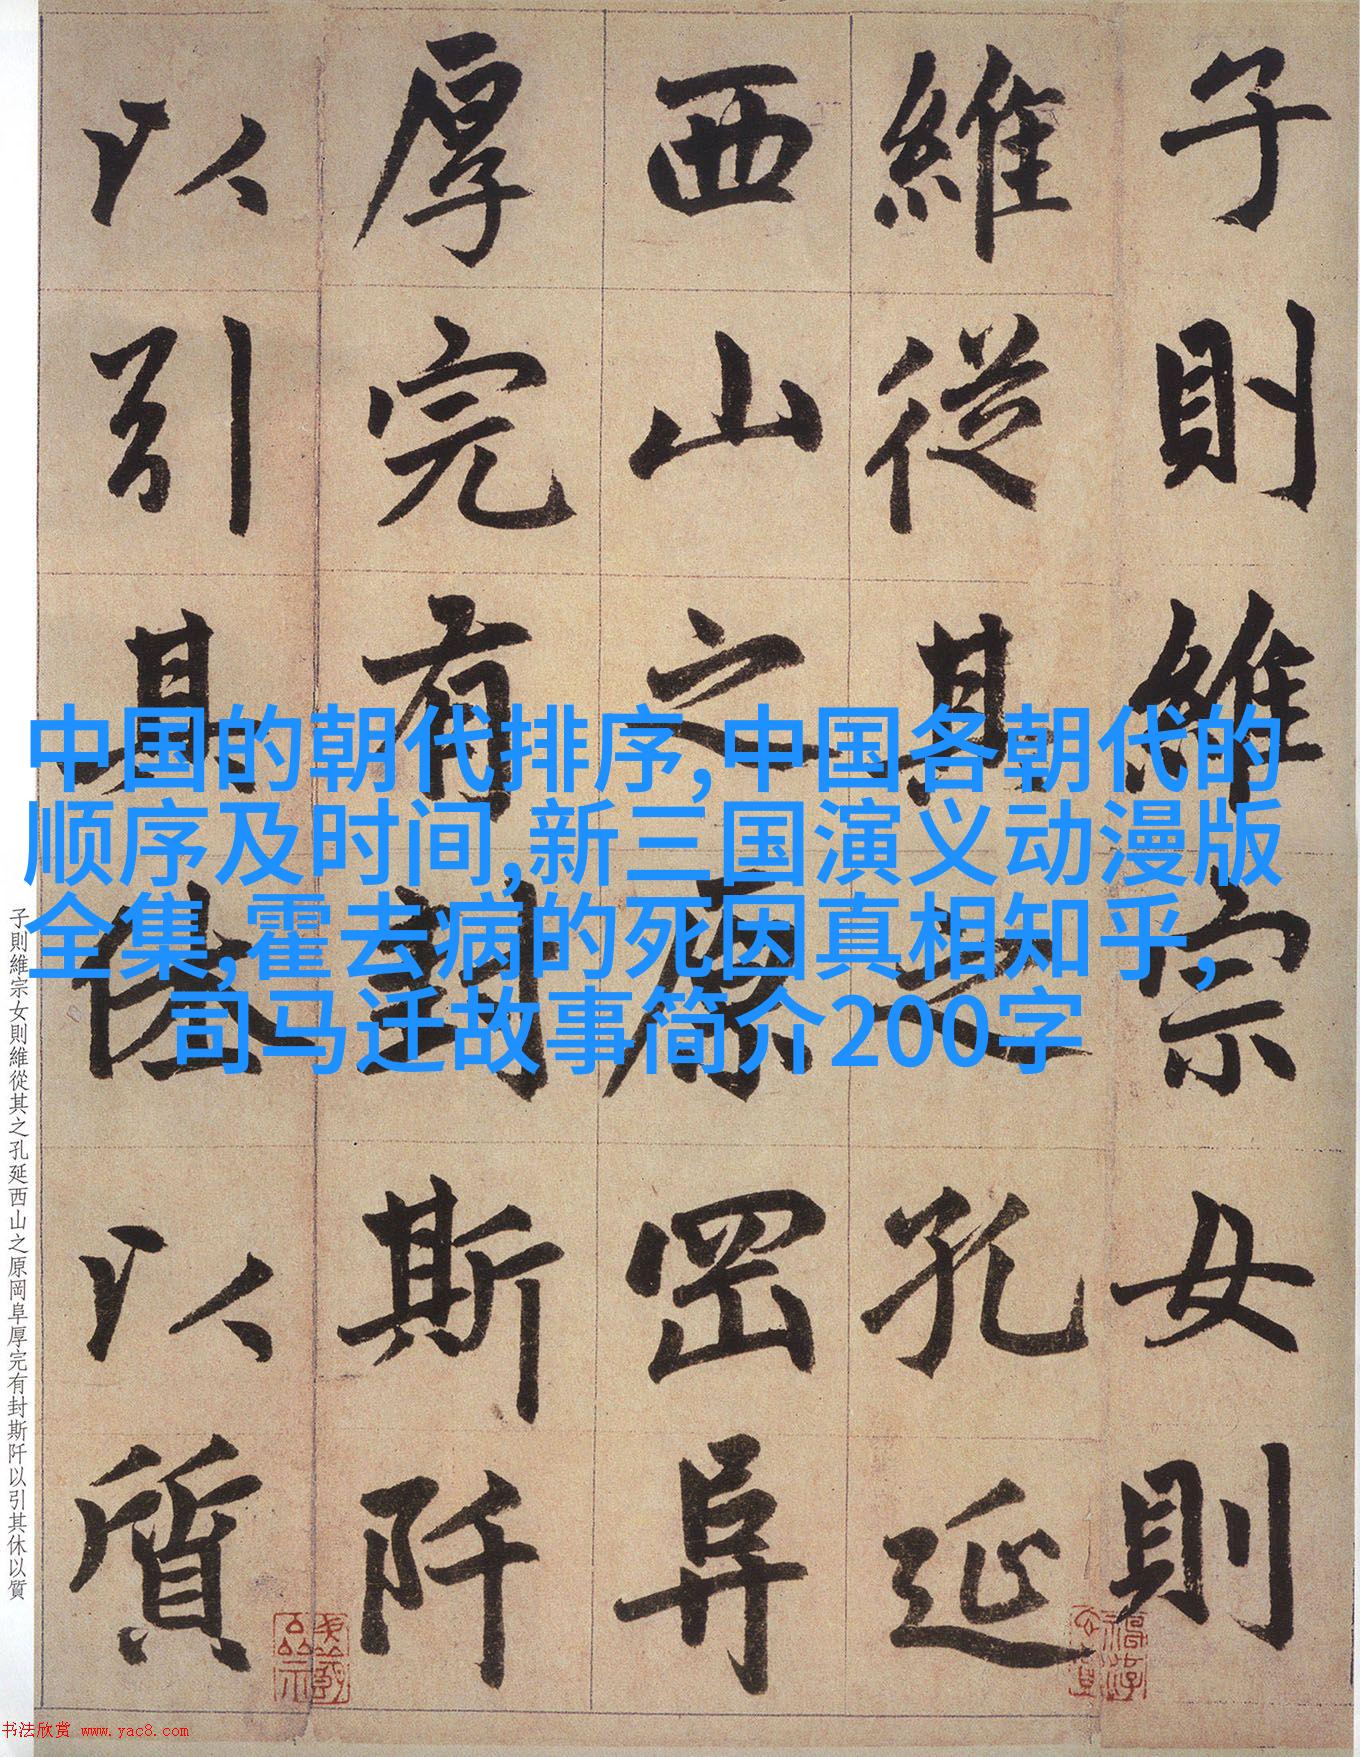 子則維宗女則
維從其之孔延
西山之原岡阜
厚完有封斯阡
以引其休以質
中国的朝代排序,中国各朝代的
顺序及时间,新三国演义动漫版
全集,霍去病的死因真相知乎,
司马迁故事简介200字
子則維宗女則維從其之孔延西山之原岡阜厚完有封斯阡以引其休以質
书法欣赏 www.yac8.com